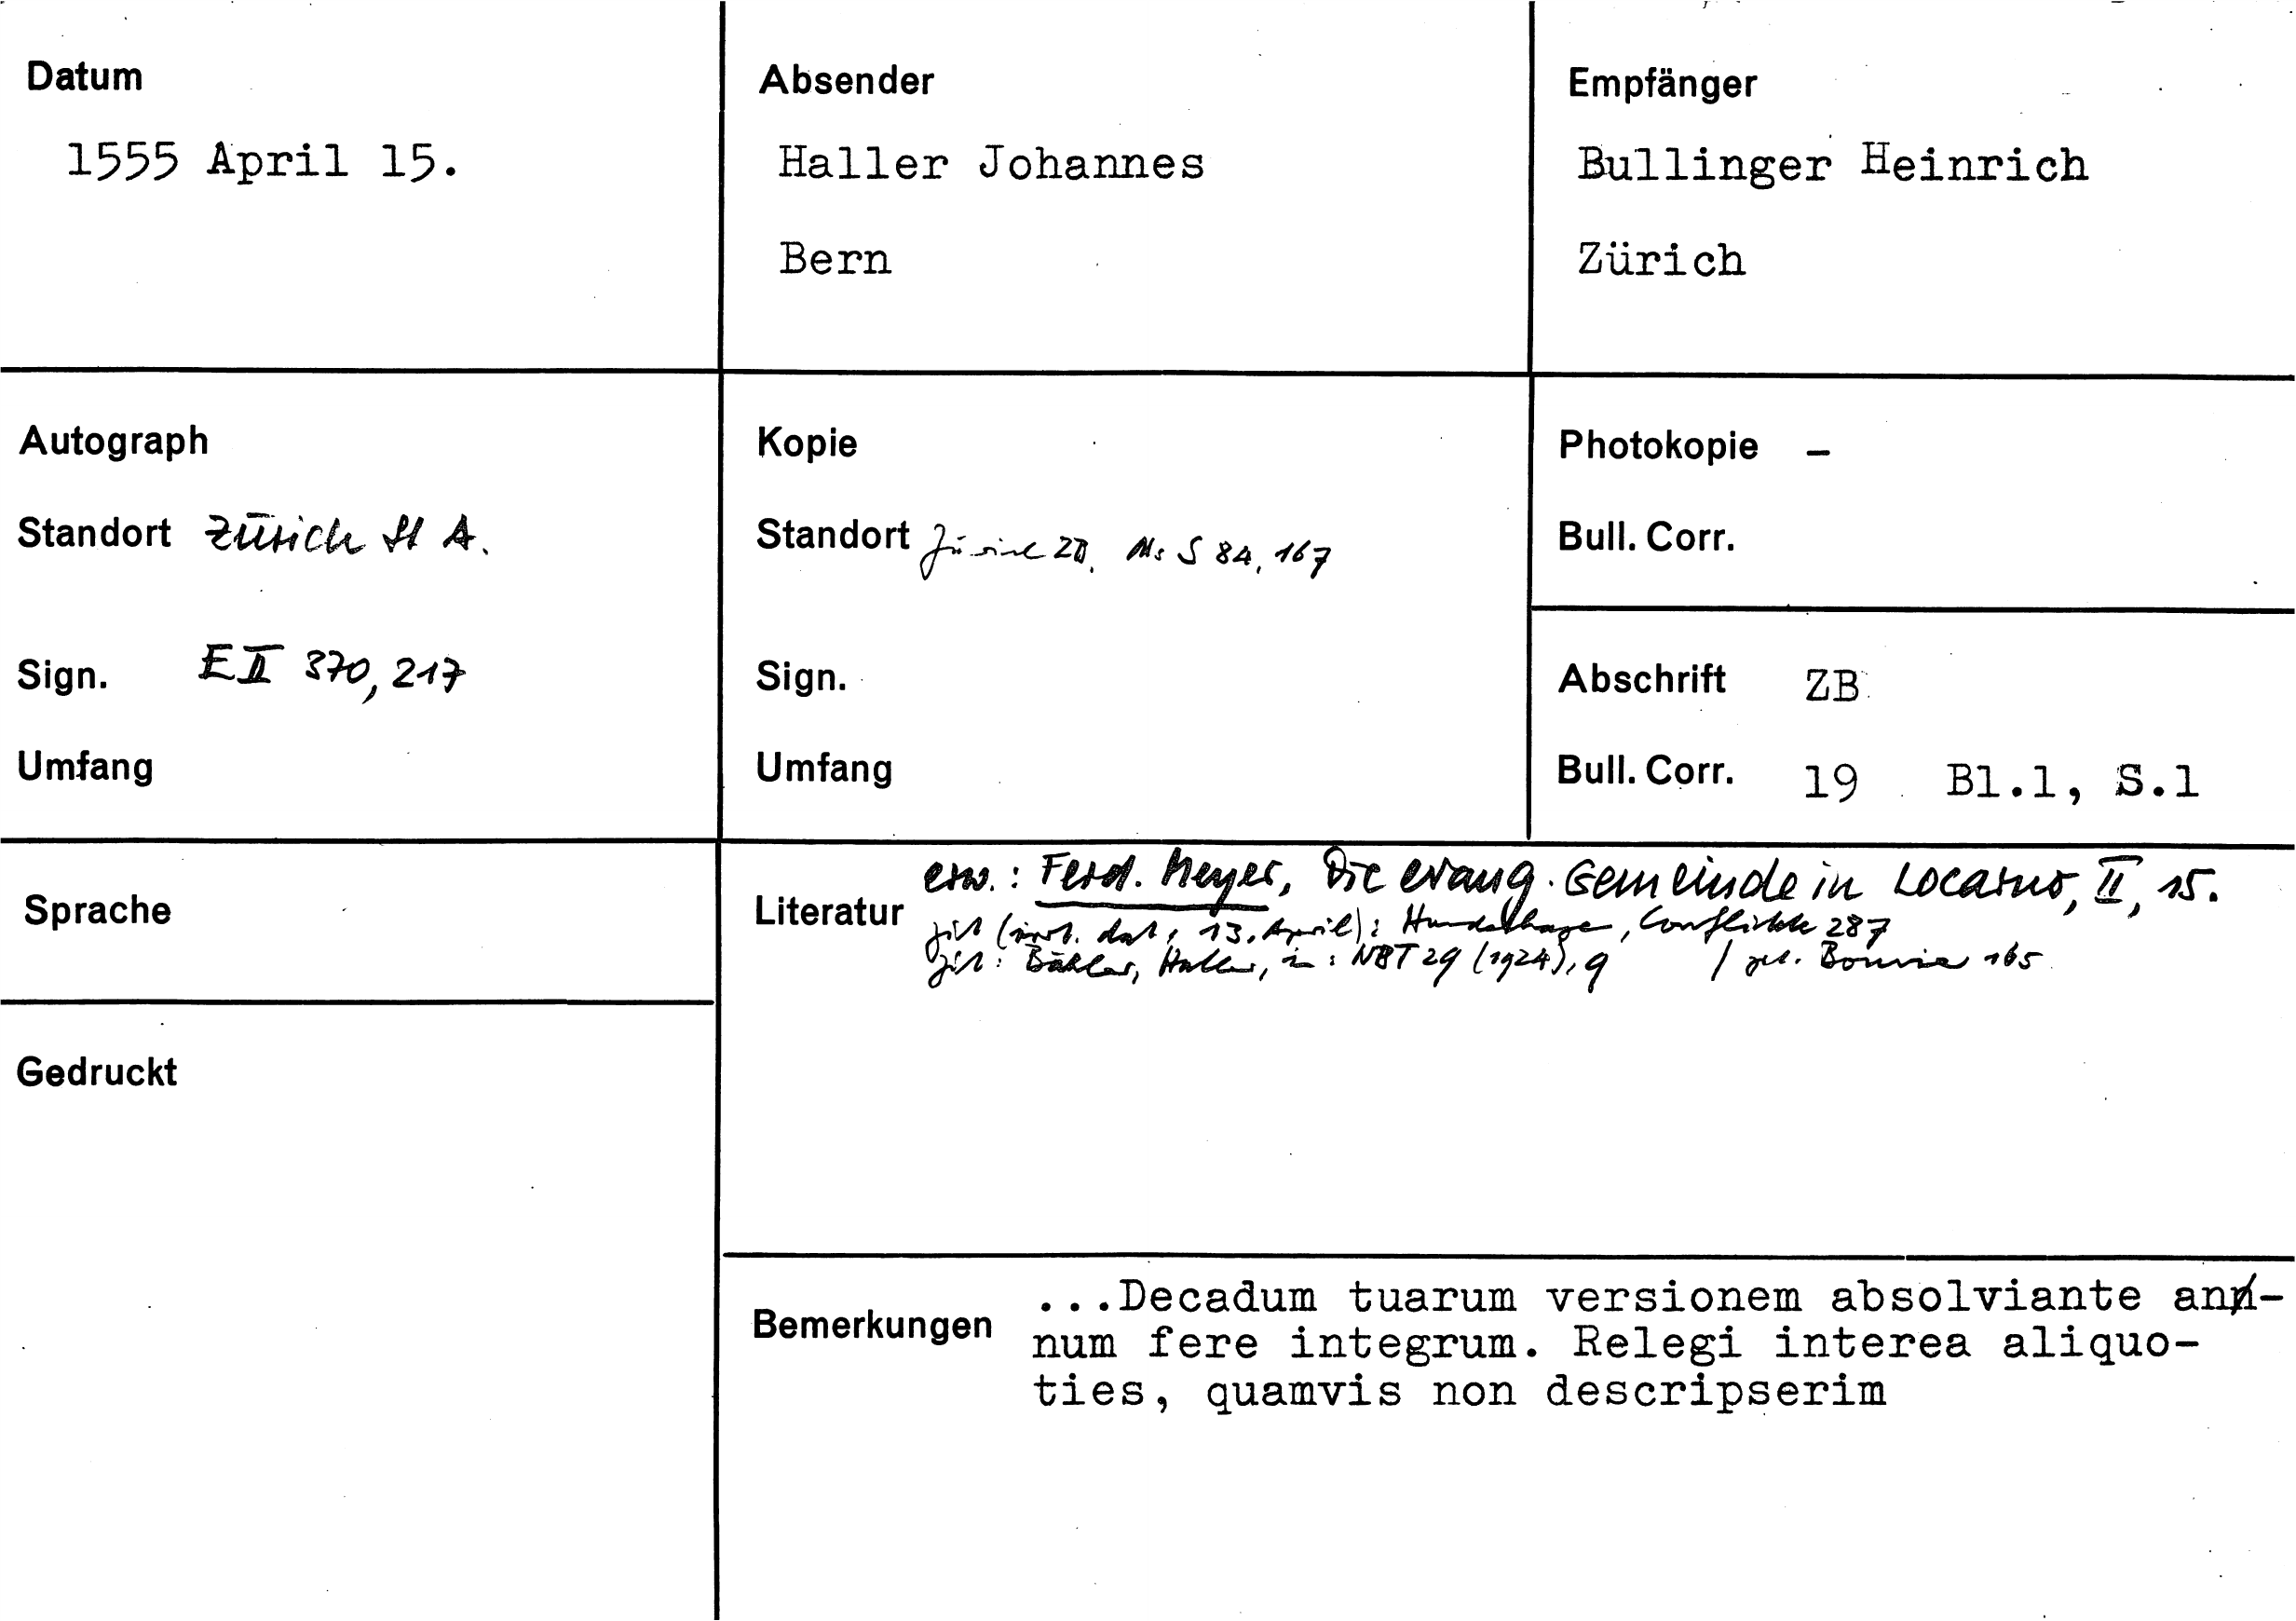 Datum
1555 April 15.
Absender
Haller Johannes
Bern
Empfänger
Bullinger Heinrich
Zürich
Autograph
Standort Zürich St A.
Sign. E II 370, 217
Umfang
Kopie
Standort Zürich ZB, Ms S 84, 167
Sign.
Umfang
Photokopie –
Bull. Corr.
Abschrift ZB
Bull. Corr. 19 Bl.1, S.1
Sprache
Gedruckt
Literatur erw.: Ferd. Meyer, Die evang. Gemeinde in Locarno, II, 15.
zit (irrt. dat. 13. April): Hundeshagen, Conflikte 287
zit: Bähler, Haller, in: NBT 29 (1924), 9 / zit. Bouvier 165
Bemerkungen ...Decadum tuarum versionem absolviante an-
num fere integrum. Relegi interea aliquo-
ties, quamvis non descripserim